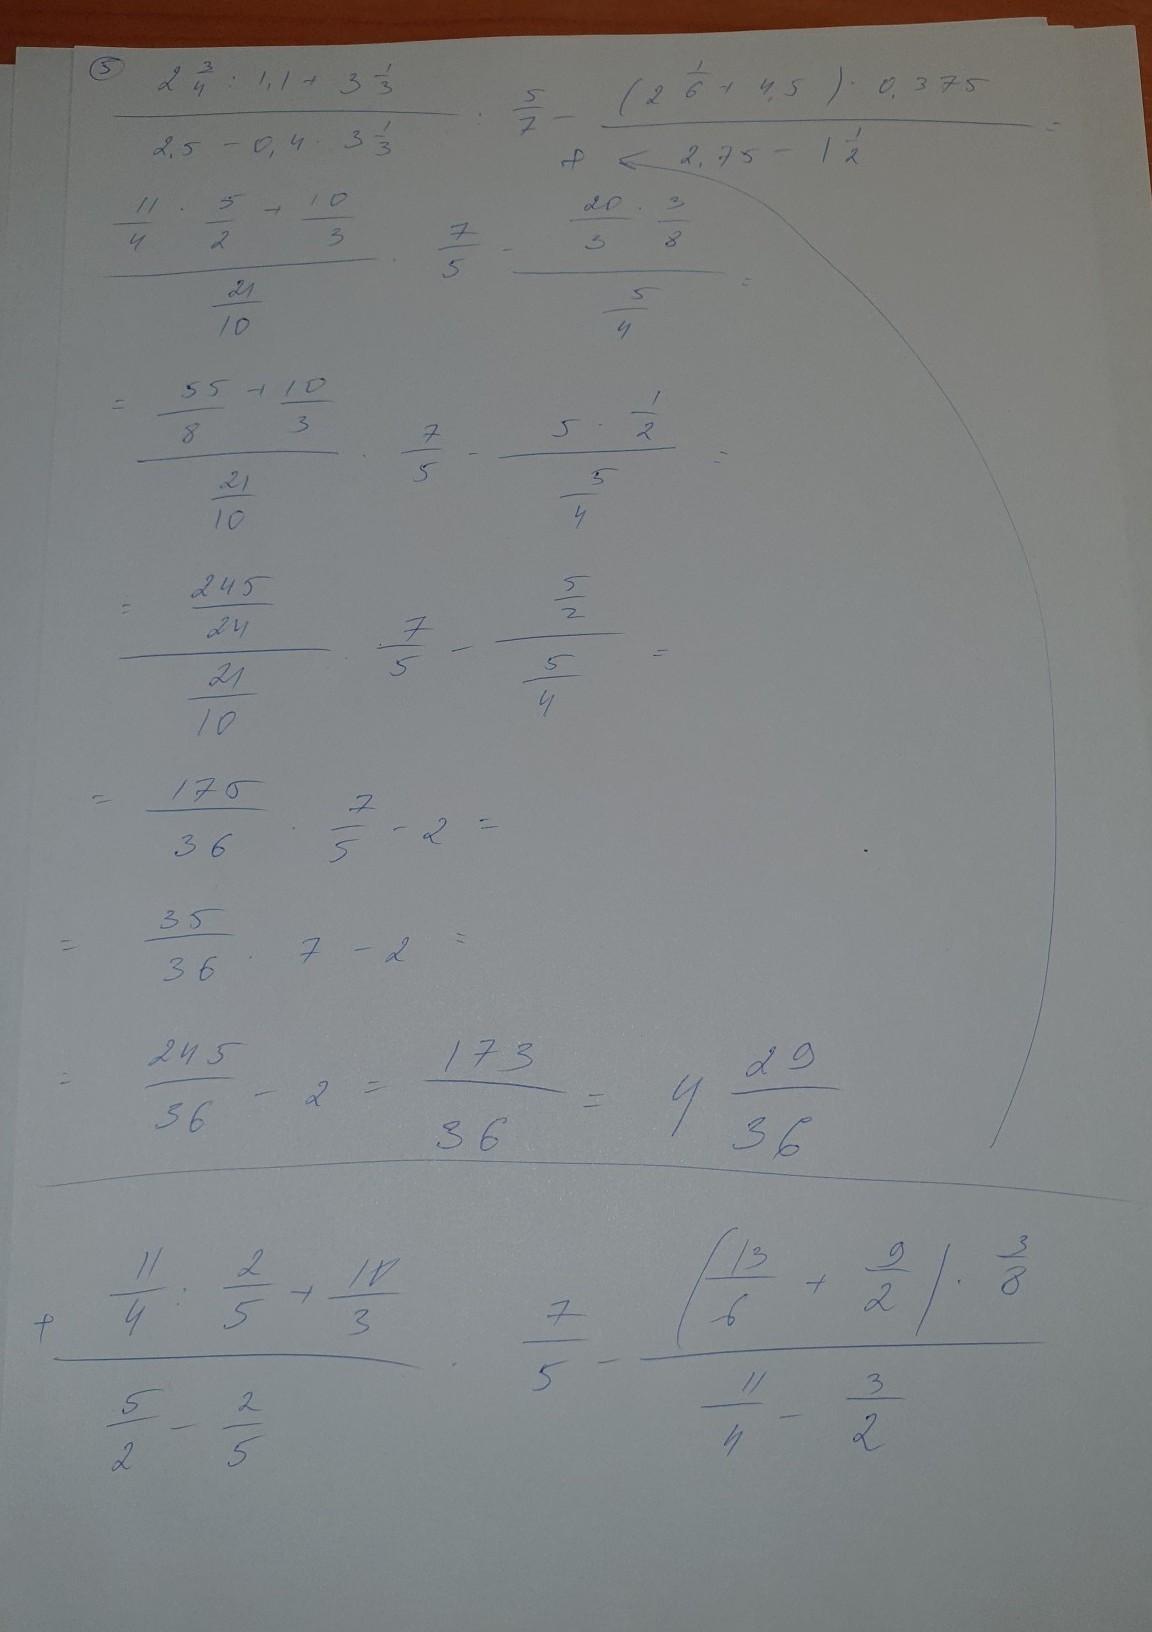 5 (2 3/4 : 1,1 + 3 1/3) / (2,5 - 0,4 · 3 1/3) · 5/7 - ((2 1/6 + 4,5) · 0,375) / (2,75 - 1 1/2) =
(11/4 · 5/2 + 10/3) / (21/10) · 7/5 - (20/3 · 3/8) / (5/4) =
= (55/8 + 10/3) / (21/10) · 7/5 - (5 · 1/2) / (5/4) =
= (245/24) / (21/10) · 7/5 - (5/2) / (5/4) =
= 175/36 · 7/5 - 2 =
= 35/36 · 7 - 2 =
= 245/36 - 2 = 173/36 = 4 29/36
+ (11/4 : 2/5 + 10/3) / (5/2 - 2/5) · 7/5 - ((13/6 + 9/2) · 3/8) / (11/4 - 3/2)